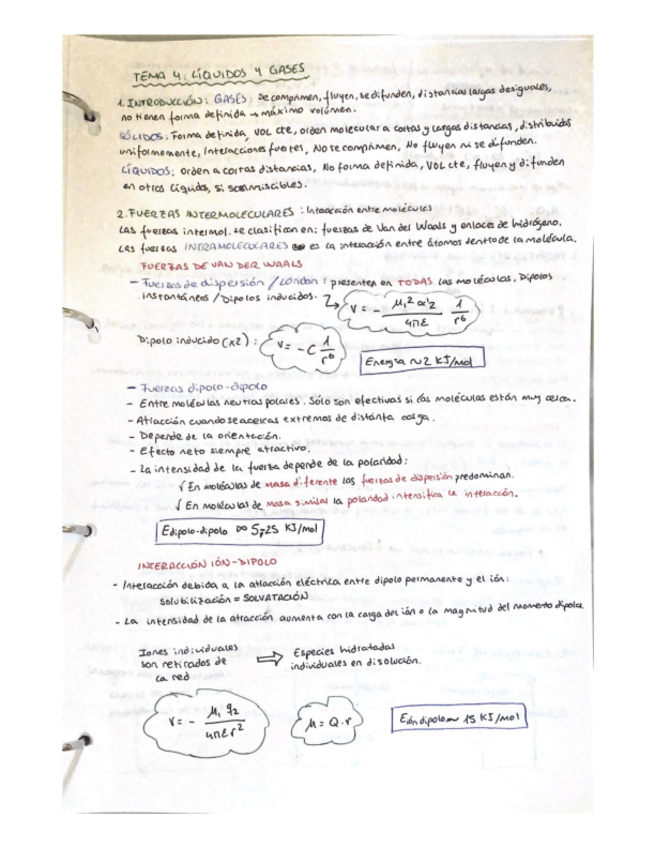 TEMA 4: LÍQUIDOS Y GASES
1. INTRODUCCIÓN: GASES: Se comprimen, fluyen, se difunden, distancias largas desiguales,
no tienen forma definida → máximo volúmen.
SÓLIDOS: Forma definida, VOL cte, orden molecular a cortas y largas distancias, distribuidos
uniformemente, Interacciones fuertes, No se comprimen, No fluyen ni se difunden.
LÍQUIDOS: Orden a cortas distancias, No forma definida, VOL cte, fluyen y difunden
en otros líquidos, si son miscibles.
2. FUERZAS INTERMOLECULARES: Interacción entre moléculas
Las fuerzas intermol. se clasifican en: fuerzas de Van der Waals y enlaces de hidrógeno.
Las fuerzas INTRAMOLECULARES es la interacción entre átomos dentro de la molécula.
FUERZAS DE VAN DER WAALS
- Fuerzas de dispersión / London: presentes en TODAS las moléculas. Dipolos
instantáneos / Dipolos inducidos. → V = - μ₁² α'2 / 4πε 1 / r⁶
Dipolo inducido (x2): V = - C 1 / r⁶
Energía ~ 2 KJ/mol
- Fuerzas dipolo-dipolo
- Entre moléculas neutras polares. Sólo son efectivas si las moléculas están muy cerca.
- Atracción cuando se acercas extremos de distinta carga.
- Depende de la orientación.
- Efecto neto siempre atractivo.
- La intensidad de la fuerza depende de la polaridad:
√ En moléculas de masa diferente las fuerzas de dispersión predominan.
√ En moléculas de masa similar la polaridad intensifica la interacción.
Edipolo-dipolo ∞ 5,25 KJ/mol
INTERACCIÓN IÓN-DIPOLO
- Interacción debida a la atracción eléctrica entre dipolo permanente y el ión:
solubilización = SOLVATACIÓN
- La intensidad de la atracción aumenta con la carga del ión o la magnitud del momento dipolar.
Iones individuales
son retirados de
la red
⇒ Especies hidratadas
individuales en disolución.
V = - μ₁ q₂ / 4πε r²
μ = Q · r
Eión dipolo ~ 15 KJ/mol